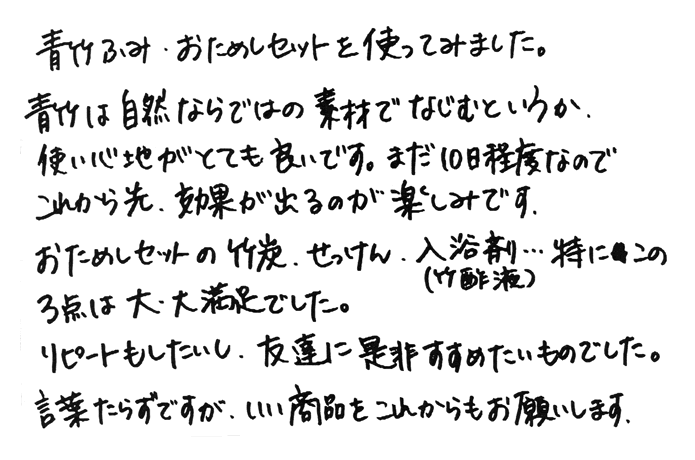 青竹ふみ・おためしセットを使ってみました。
青竹は自然ならではの素材でなじむというか、
使い心地がとても良いです。まだ10日程度なので
これから先、効果が出るのが楽しみです。
おためしセットの竹炭、せっけん、入浴剤…特にこの
(竹酢液)
3点は大・大満足でした。
リピートもしたいし、友達に是非すすめたいものでした。
言葉たらずですが、いい商品をこれからもお願いします。